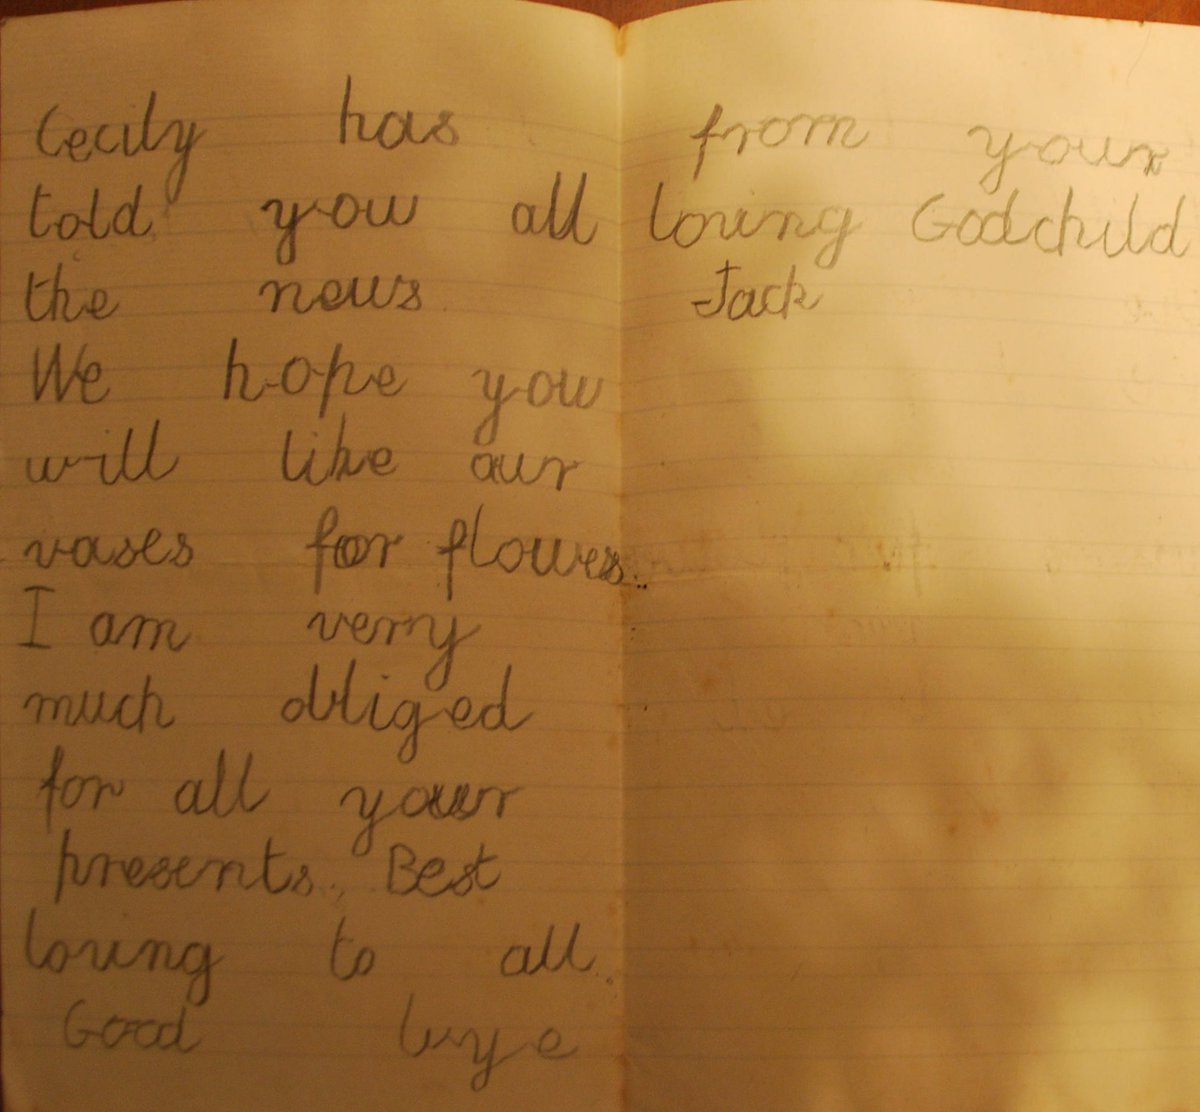 Cecily has
told you all
the news
We hope you
will like our
vases for flowers.
I am very
much obliged
for all your
presents. Best
loving to all.
Good bye
from your
loving Godchild
Jack